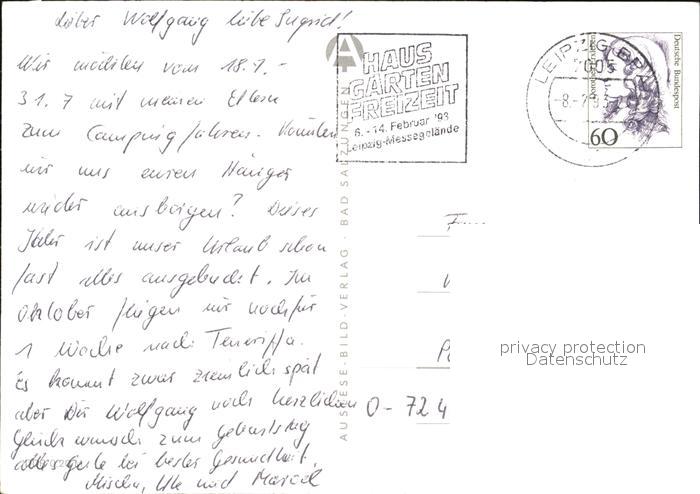 Lieber Wolfgang liebe Ingrid!
Wir möchten vom 18.7.-
31.7 mit meinen Eltern
zum Camping fahren. Könnten
wir uns euren Hänger
wieder ausborgen? Dieses
Jahr ist unser Urlaub schon
fast alles ausgebucht. Im
Oktober fliegen wir noch für
1 Woche nach Teneriffa.
Es kommt zwar ziemlich spät
aber Dir Wolfgang noch herzlichen
Glückwunsch zum Geburtstag
alles Gute bei bester Gesundheit.
Mischa, Ute und Marcel
AUSLESE-BILD-VERLAG · BAD SALZUNGEN
HAUS
GARTEN
FREIZEIT
6. - 14. Februar '93
Leipzig-Messegelände
LEIPZIG BPA
Deutsche Bundespost
60
O-724
privacy protection
Datenschutz